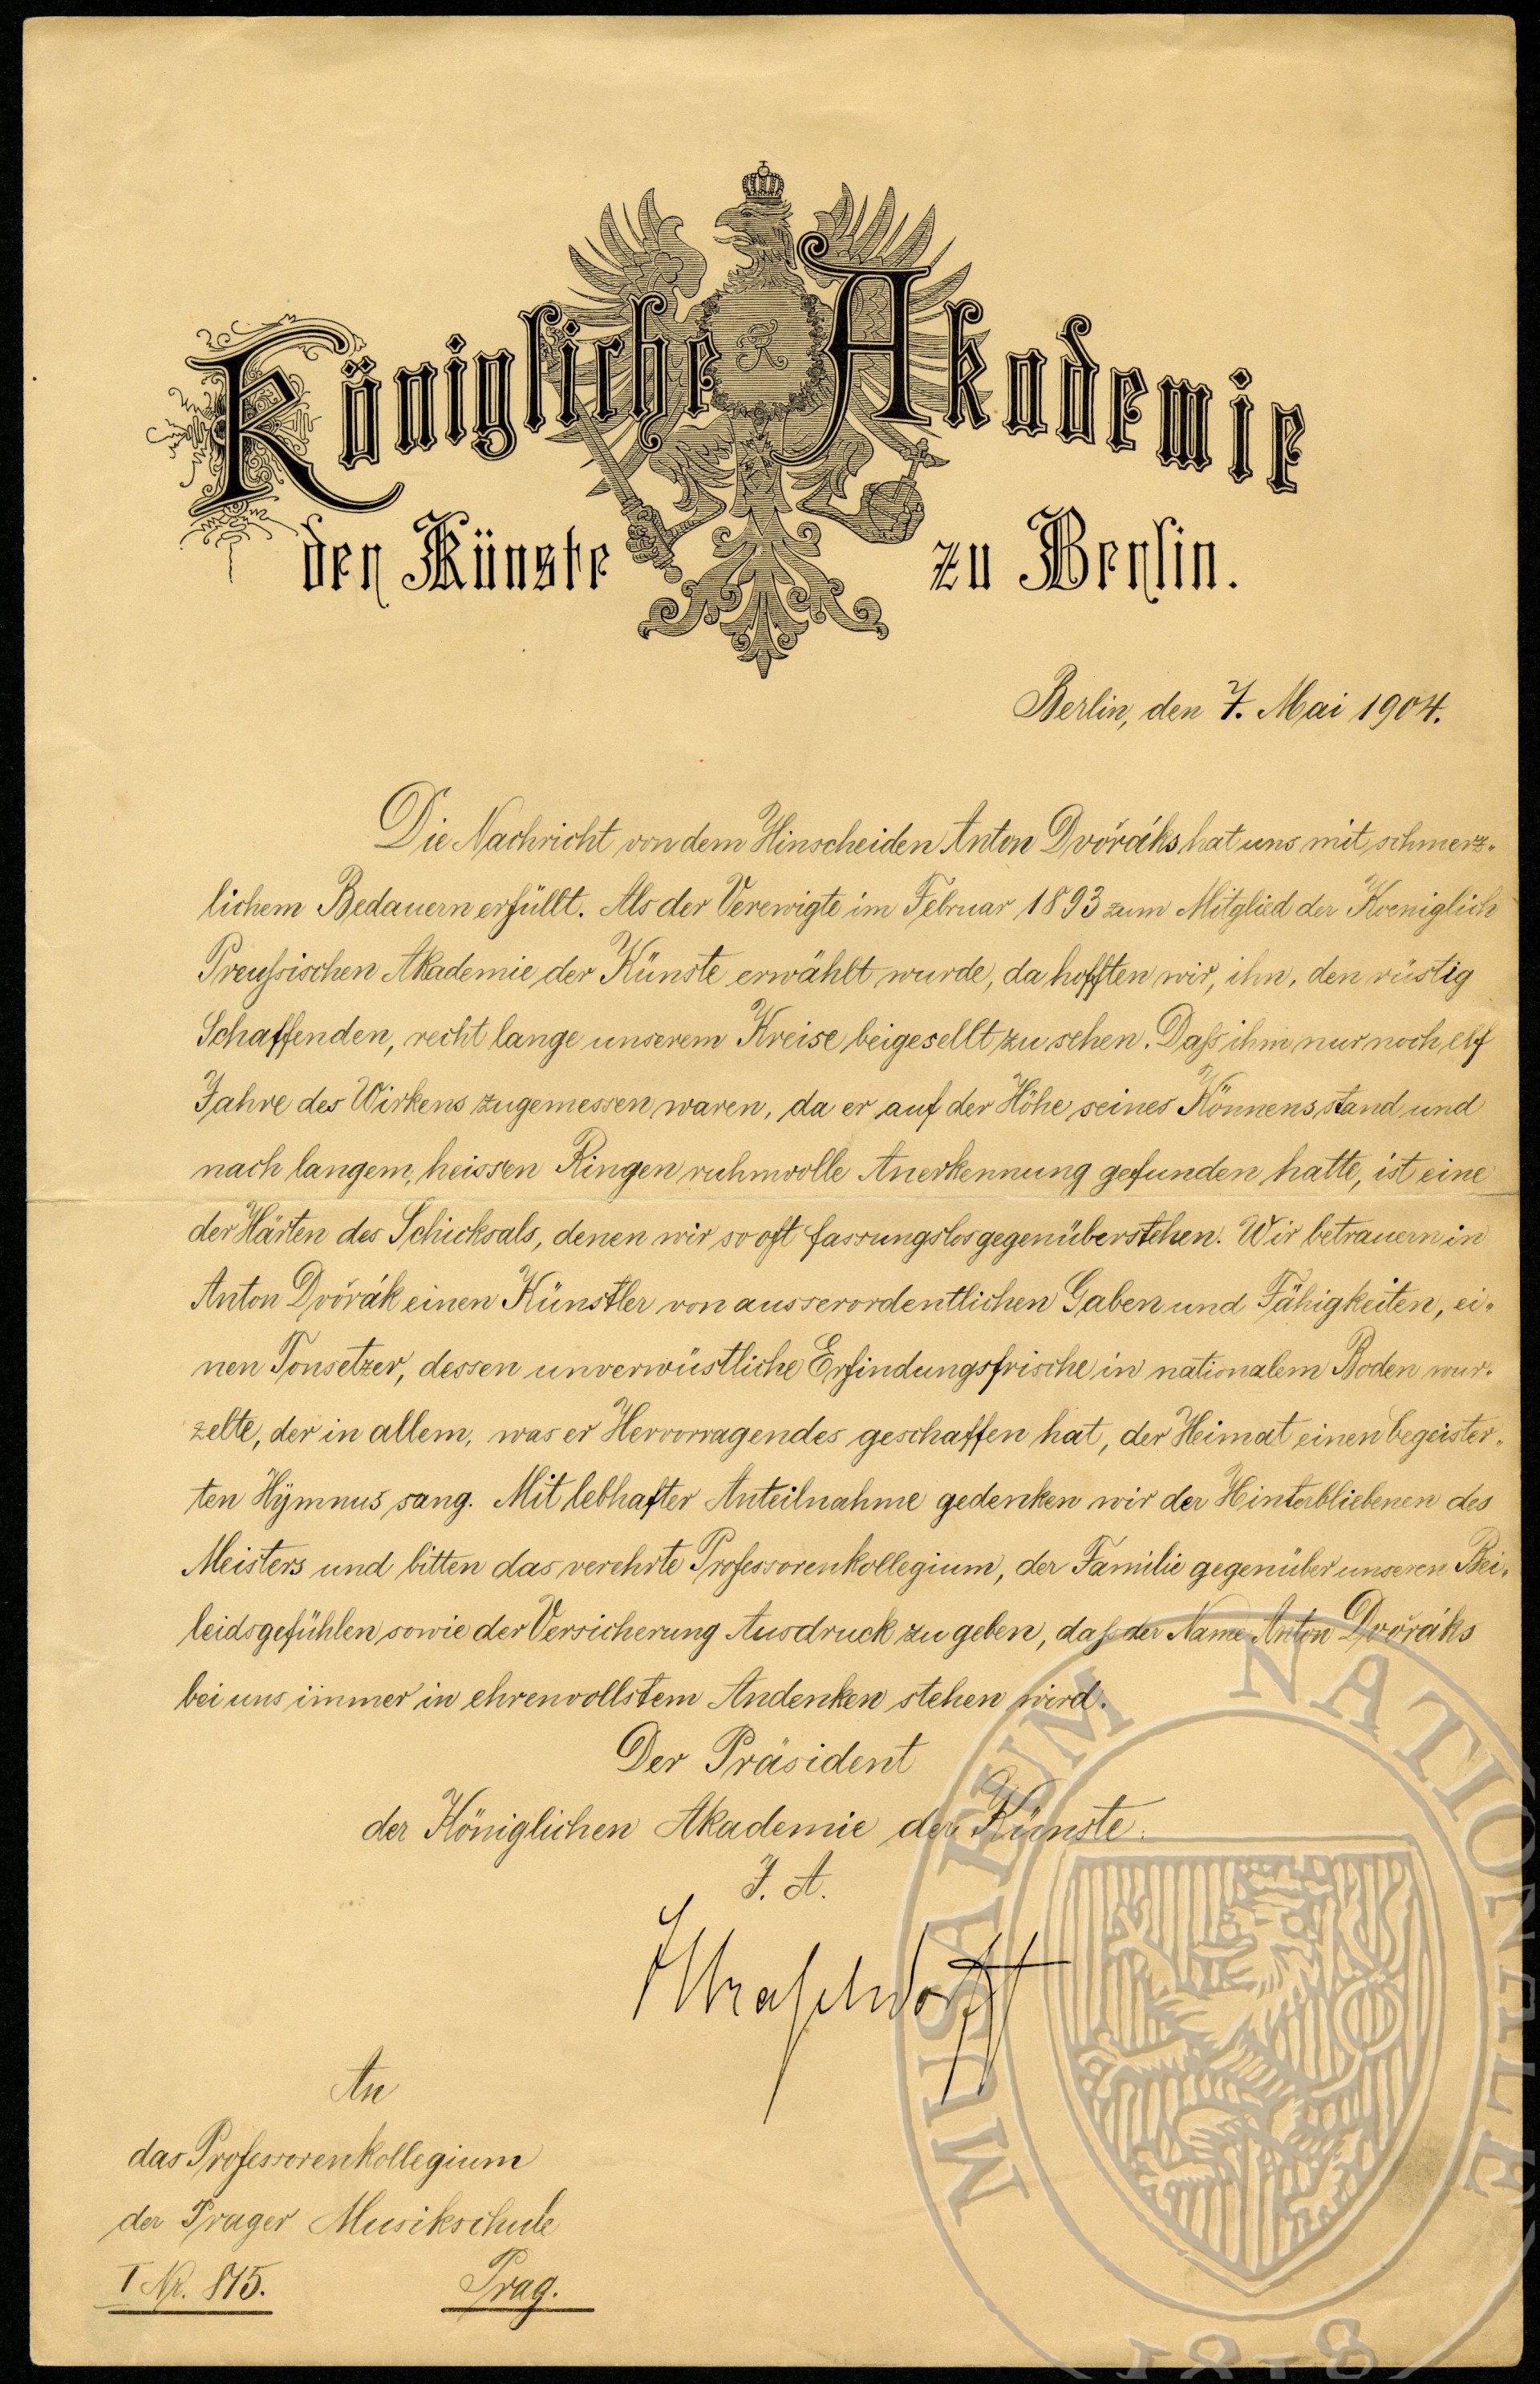 Königliche Akademie
der Künste zu Berlin.
Berlin, den 7. Mai 1904.
Die Nachricht von dem Hinscheiden Anton Dvořáks hat uns mit schmerz-
lichem Bedauern erfüllt. Als der Verewigte im Februar 1893 zum Mitglied der Koeniglich
Preußischen Akademie der Künste erwählt wurde, da hofften wir, ihn, den rüstig
Schaffenden, recht lange unserem Kreise beigesellt zu sehen. Daß ihm nur noch elf
Jahre des Wirkens zugemessen waren, da er auf der Höhe seines Könnens stand und
nach langem, heissen Ringen ruhmvolle Anerkennung gefunden hatte, ist eine
der Härten des Schicksals, denen wir so oft fassungslos gegenüberstehen. Wir betrauern in
Anton Dvořák einen Künstler von ausserordentlichen Gaben und Fähigkeiten, ei-
nen Tonsetzer, dessen unverwüstliche Erfindungsfrische in nationalem Boden wur-
zelte, der in allem, was er Hervorragendes geschaffen hat, der Heimat einen begeister-
ten Hymnus sang. Mit lebhafter Anteilnahme gedenken wir der Hinterbliebenen des
Meisters und bitten das verehrte Professorenkollegium, der Familie gegenüber unseren Bei-
leidsgefühlen sowie der Versicherung Ausdruck zu geben, daß der Name Anton Dvořáks
bei uns immer in ehrenvollstem Andenken stehen wird.
Der Präsident
der Königlichen Akademie der Künste.
J. A.
An
das Professorenkollegium
der Prager Musikschule
I Nr. 815. Prag.
MUSAEUM NATIONALE
1818